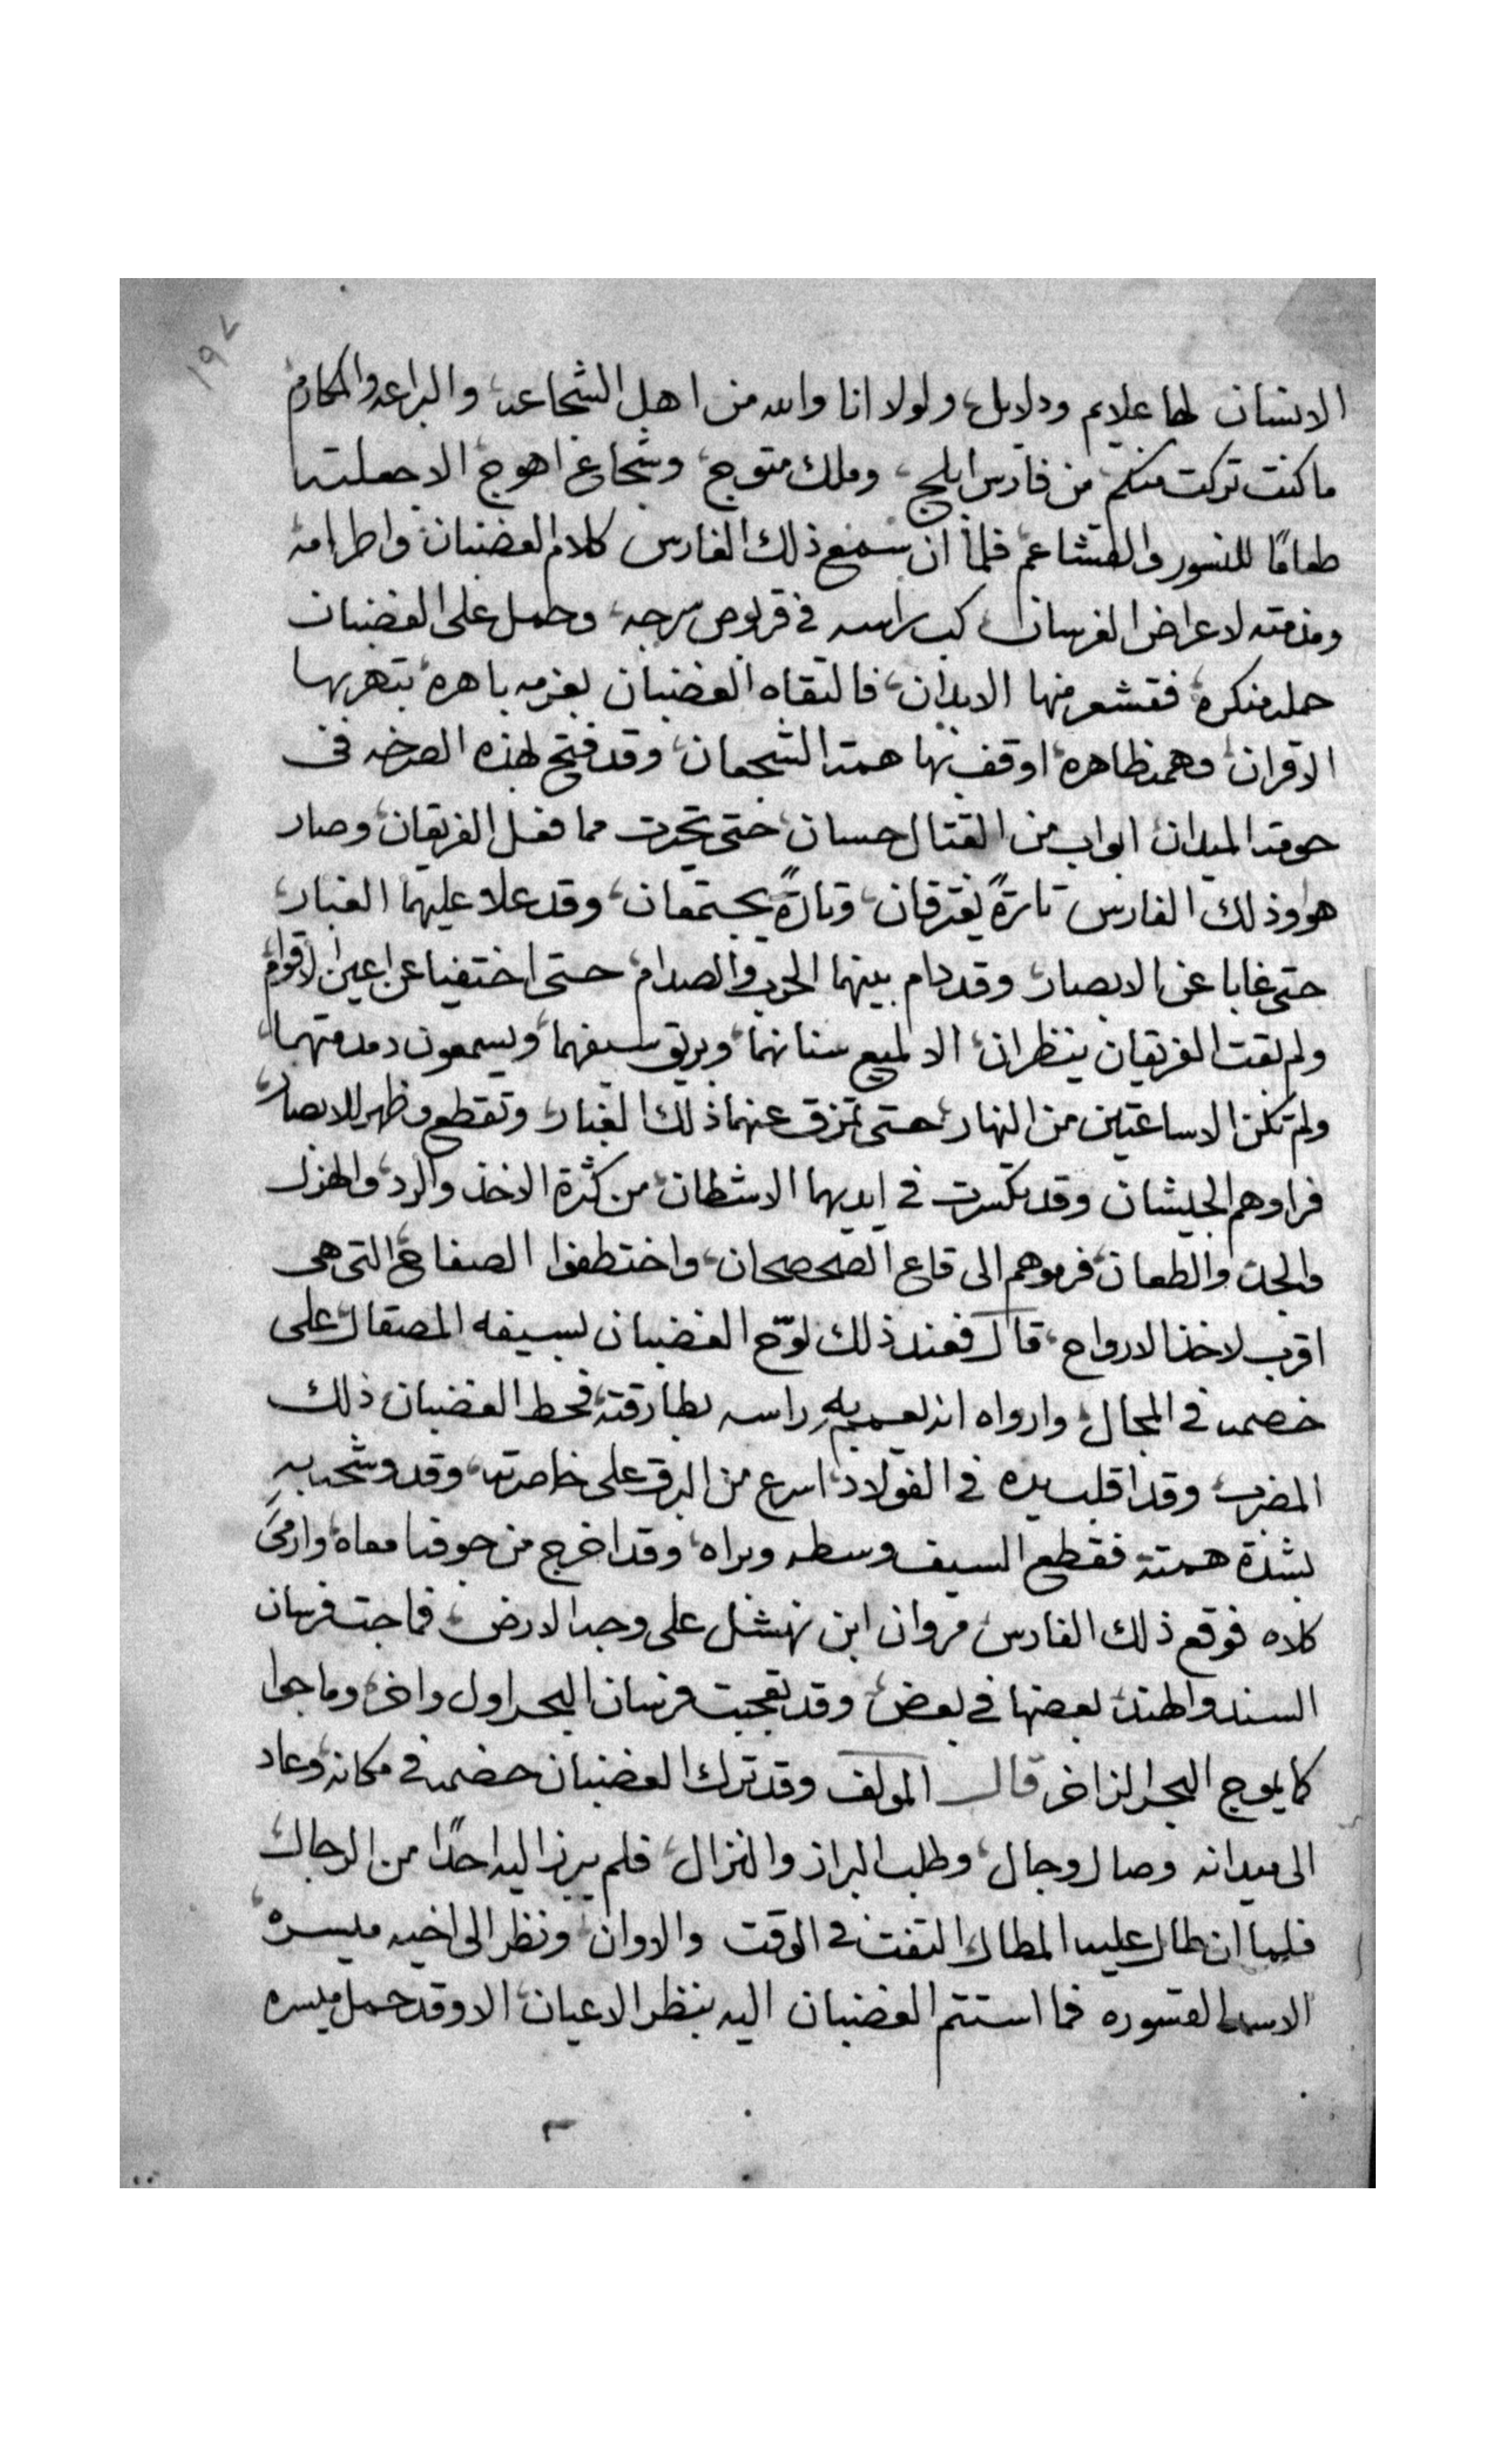 ١٩٧
الانسان لها علايم ودلايل، ولولا انا والله من اهل الشجاعه، والبراعه والمكارم
ما كنت تركت منكم من فارس ابلج، وملك متوج، وشجاع اهوج، الا جعلته
طعامًا للنسور والقشاعم، فلما ان سمع ذلك الفارس كلام الغضبان، واطرامه
ومذمته لاعراض الفرسان، كب براسه في قربوص سرجه، وحمل على الغضبان
حمله منكره، فقشعر منها الابدان، فالتقاه الغضبان بعزمه باهره، يتهر بها
الاقران، وهمه ظاهره، اوقف بها همة الشجعان، وقد فتح لهذه الصرخه في
حومة الميدان، ابواب من القتال حسان، حتى تحيرت مما فعل الفريقان، وصار
هو وذلك الفارس تارةً يفترقان، وتارةً يجتمعان، وقد علا عليهما الغبار،
حتى غابا عن الابصار، وقد دام بينهما الحرب والصدام، حتى اختفيا عن اعين الاقوام،
ولم بقت الفريقان ينظران، الا لميع سنانهما، وبريق سيفهما، ويسمعون دمدمتهما،
ولم تكن الا ساعتين من النهار، حتى تمزق عنهما ذلك الغبار، وتقطع وظهر للابصار،
فراوهم الجيشان وقد تكسرت في ايديهما الاشطان، من كثرة الاخذ والرد، والهزل
والجد، والطعان، فرموهم الى قاع الصحصحان، واختطفوا الصفاح، التى هى
اقرب لاخذ الارواح، قال فعند ذلك لوّح الغضبان بسيفه المصقال، على
خصمه في المجال، وارواه انه يعميه راسه بطارقته، فحط الغضبان ذلك
المضرب، وقد اقلب يده في الفولاد، اسرع من البرق على خاصرته، وقد وشحه به
بشدة همته فقطع السيف وسطه وبراه، وقد اخرج من جوفه امعاه، وارمىَ
كلاه فوقع ذلك الفارس مروان ابن نهشل على وجه الارض، فماجت فرسان
السند والهند، بعضها في بعض، وقد تعجبت فرسان البحر اول واخر، وماجوا
كما يموج البحر الزاخر قال المولف وقد ترك الغضبان خصمه في مكانه، وعاد
الى ميدانه وصال وجال، وطلب البراز والنزال، فلم يبرز اليه احدًا من الرجال
فلما ان طال عليه المطال، التفت في الوقت والاوان، ونظر الى اخيه ميسره،
الاسد القسوره فما استتم الغضبان اليه بنظر الاعيان، الا وقد حمل ميسره